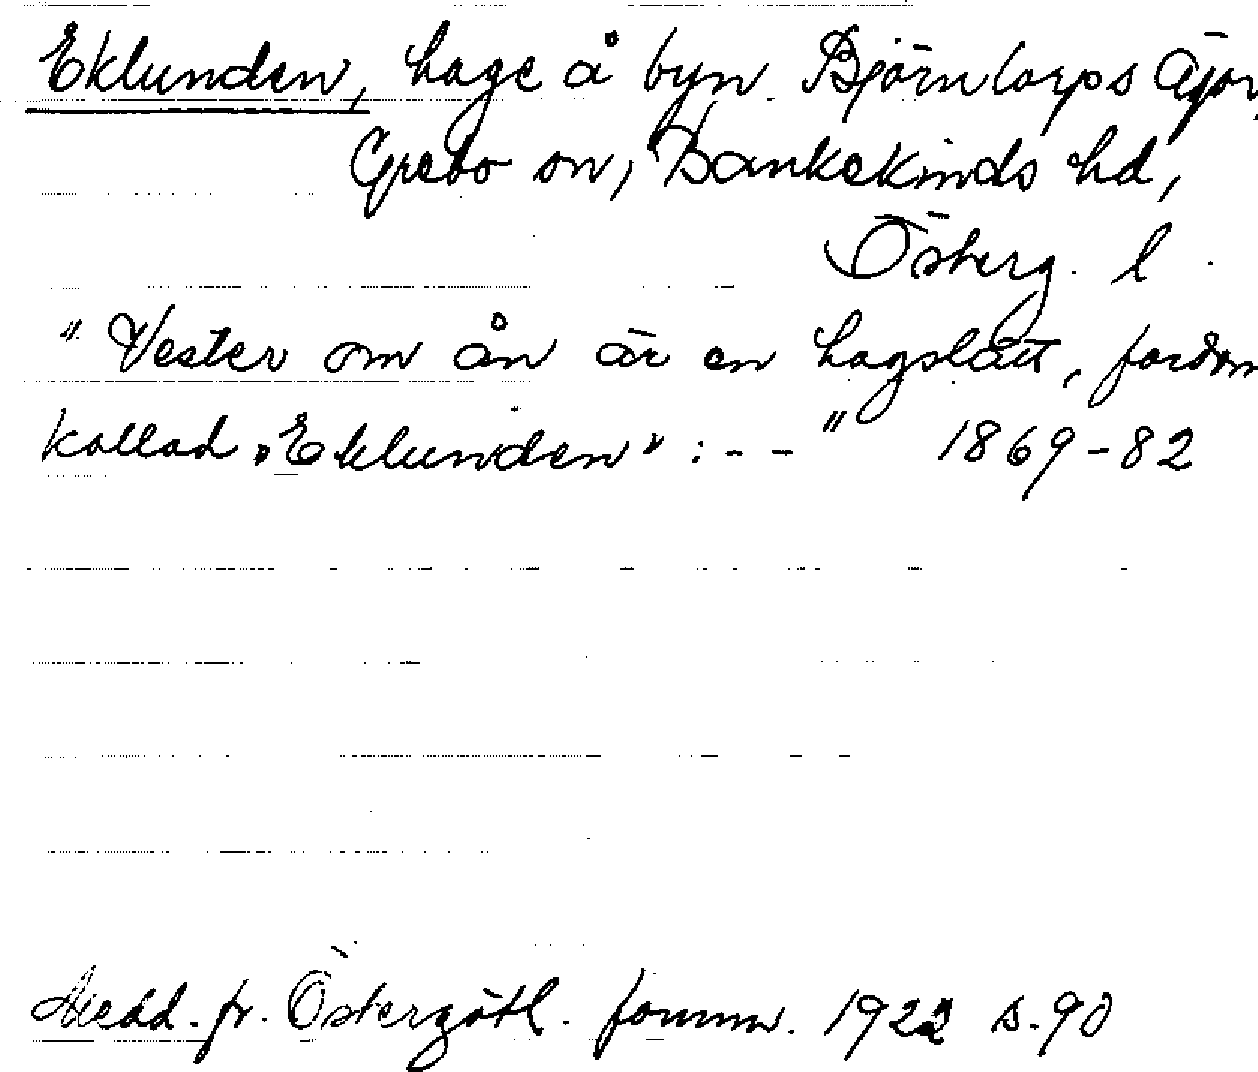 Eklunden, hage å byn Björntorps ägor,
Grebo sn, Bankekinds hd,
Österg. l.
" Vester om ån är en hagslätt, fordom
kallad "Eklunden" : - - " 1869-82
Medd. fr. Östergötl. fornm. 1922 s. 90